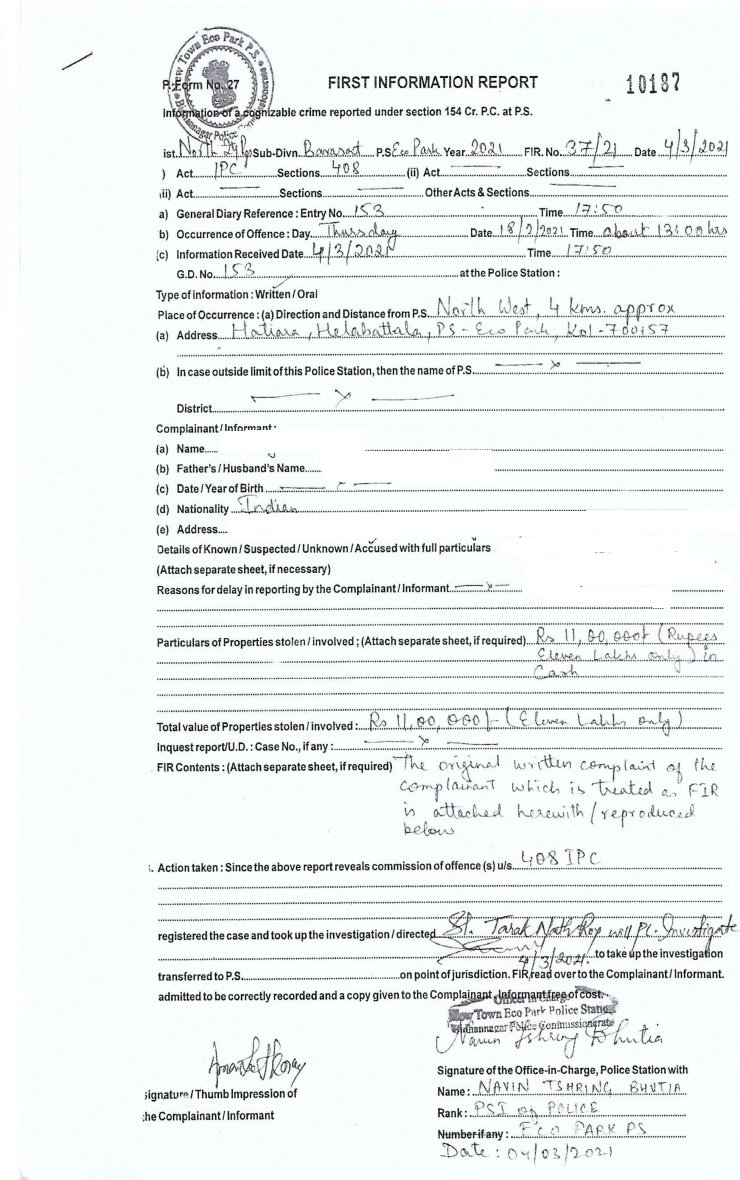 New Town Eco Park P.S.
Bidhannagar Police Commissionerate
P. Form No. 27
FIRST INFORMATION REPORT
10187
Information of a cognizable crime reported under section 154 Cr. P.C. at P.S.
ist. North 24 Pgs Sub-Divn. Barasat P.S Eco Park Year 2021 FIR. No. 37/21 Date 4/3/2021
) Act IPC Sections 408 (ii) Act Sections
ii) Act Sections Other Acts & Sections
a) General Diary Reference : Entry No. 153 Time 17:50
b) Occurrence of Offence : Day Thursday Date 18/2/2021 Time about 13:00 hrs
(c) Information Received Date 4/3/2021 Time 17:50
G.D. No. 153 at the Police Station :
Type of information : Written / Oral
Place of Occurrence : (a) Direction and Distance from P.S. North West, 4 kms. approx
(a) Address Hatiara, Helabattala, PS - Eco Park, Kol-700157
(b) In case outside limit of this Police Station, then the name of P.S. x
District x
Complainant / Informant :
(a) Name
(b) Father's / Husband's Name
(c) Date / Year of Birth
(d) Nationality Indian
(e) Address
Details of Known / Suspected / Unknown / Accused with full particulars
(Attach separate sheet, if necessary)
Reasons for delay in reporting by the Complainant / Informant x
Particulars of Properties stolen / involved ; (Attach separate sheet, if required) Rs 11,00,000/- (Rupees
Eleven Lakhs only) in
Cash
Total value of Properties stolen / involved : Rs 11,00,000/- (Eleven Lakhs only)
Inquest report/U.D. : Case No., if any : x
FIR Contents : (Attach separate sheet, if required) The original written complaint of the
complainant which is treated as FIR
is attached herewith/reproduced
below
. Action taken : Since the above report reveals commission of offence (s) u/s. 408 IPC
registered the case and took up the investigation / directed SI. Tarak Nath Roy will Pl. Investigate
4/3/2021. to take up the investigation
transferred to P.S. on point of jurisdiction. FIR read over to the Complainant / Informant.
admitted to be correctly recorded and a copy given to the Complainant Informant free of cost.
Officer in Charge
New Town Eco Park Police Station
Bidhannagar Police Commissionerate
Navin Tshring Bhutia
Signature of the Office-in-Charge, Police Station with
signature / Thumb Impression of
Name : NAVIN TSHRING BHUTIA
Rank : PSI of POLICE
the Complainant / Informant
Number if any : ECO PARK PS
Date : 04/03/2021